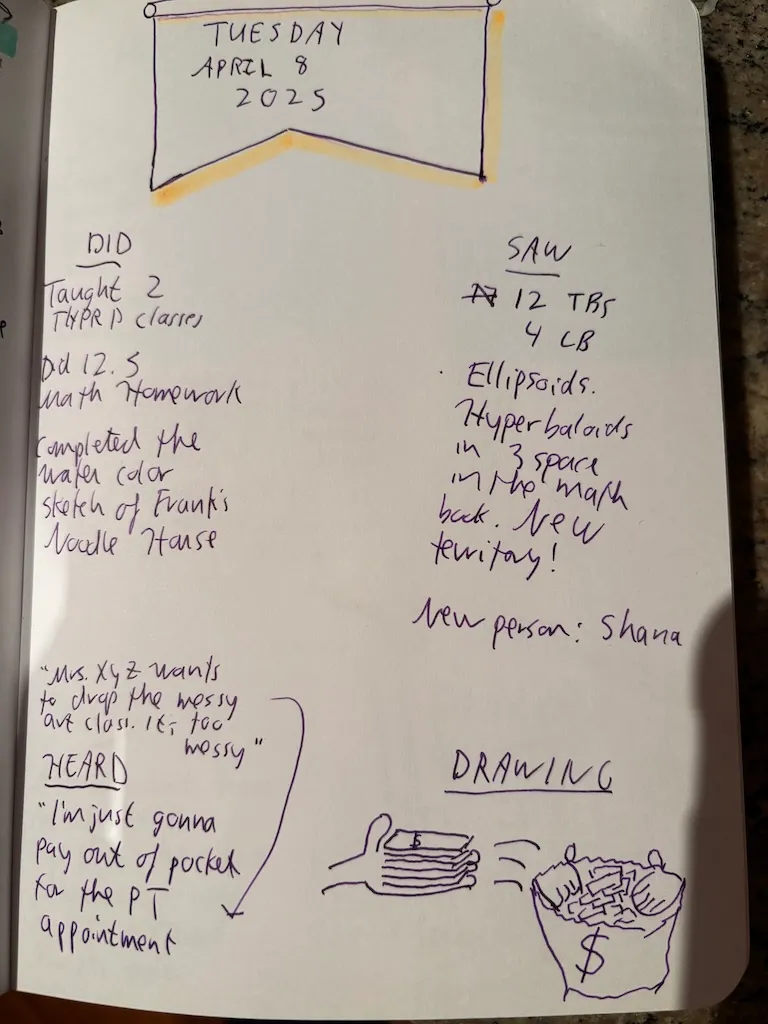 TUESDAY
APRIL 8
2025
DID
Taught 2
classes
Did 12.5
Math Homework
Completed the
water color
sketch of Frank's
Noodle House
SAW
12 TBs
4 LB
Ellipsoids.
Hyperbaloids
in 3 space
in the math
book. New
territory!
New person: Shana
"Mrs. XYZ wants
to drop the messy
art class. It's too
messy"
HEARD
"I'm just gonna
pay out of pocket
for the PT
appointment
DRAWING
$
$